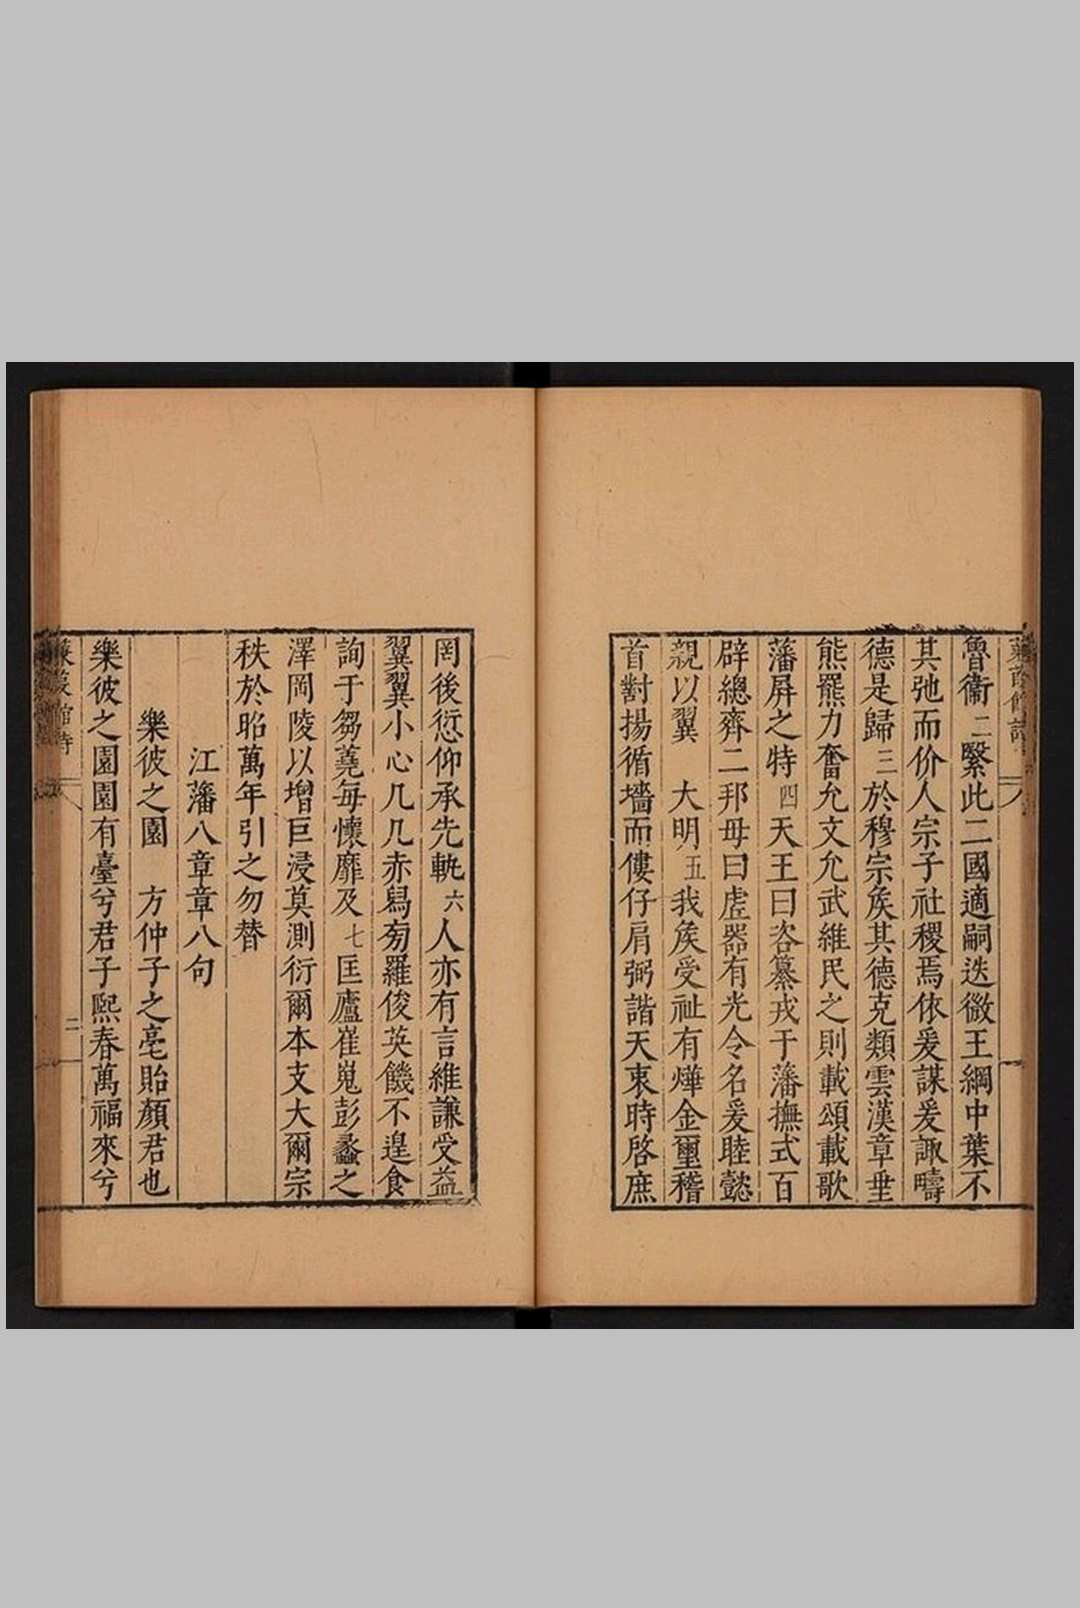 魯衞二緊此二國適嗣迭微王綱中葉不
其弛而价人宗子社稷焉依爰謀爰諏疇
德是歸三於穆宗矦其德克類雲漢章垂
熊羆力奮允文允武維民之則載頌載歌
藩屏之特四天王曰咨纂戎于藩撫式百
辟總齊二邦毋曰虚器有光令名爰睦懿
親以翼 大明五我矦受祉有燁金璽稽
首對揚循墻而僂仔肩弼諧天衷時啓庶
罔後愆仰承先軌六人亦有言維謙受益
翼翼小心几几赤舄旁羅俊英饑不遑食
詢于芻蕘每懷靡及七匡廬崔嵬彭蠡之
澤岡陵以增巨浸莫測衍爾本支大爾宗
秩於昭萬年引之勿替
江藩八章章八句
樂彼之園 方仲子之亳貽顏君也
樂彼之園園有臺兮君子熙春萬福來兮
二